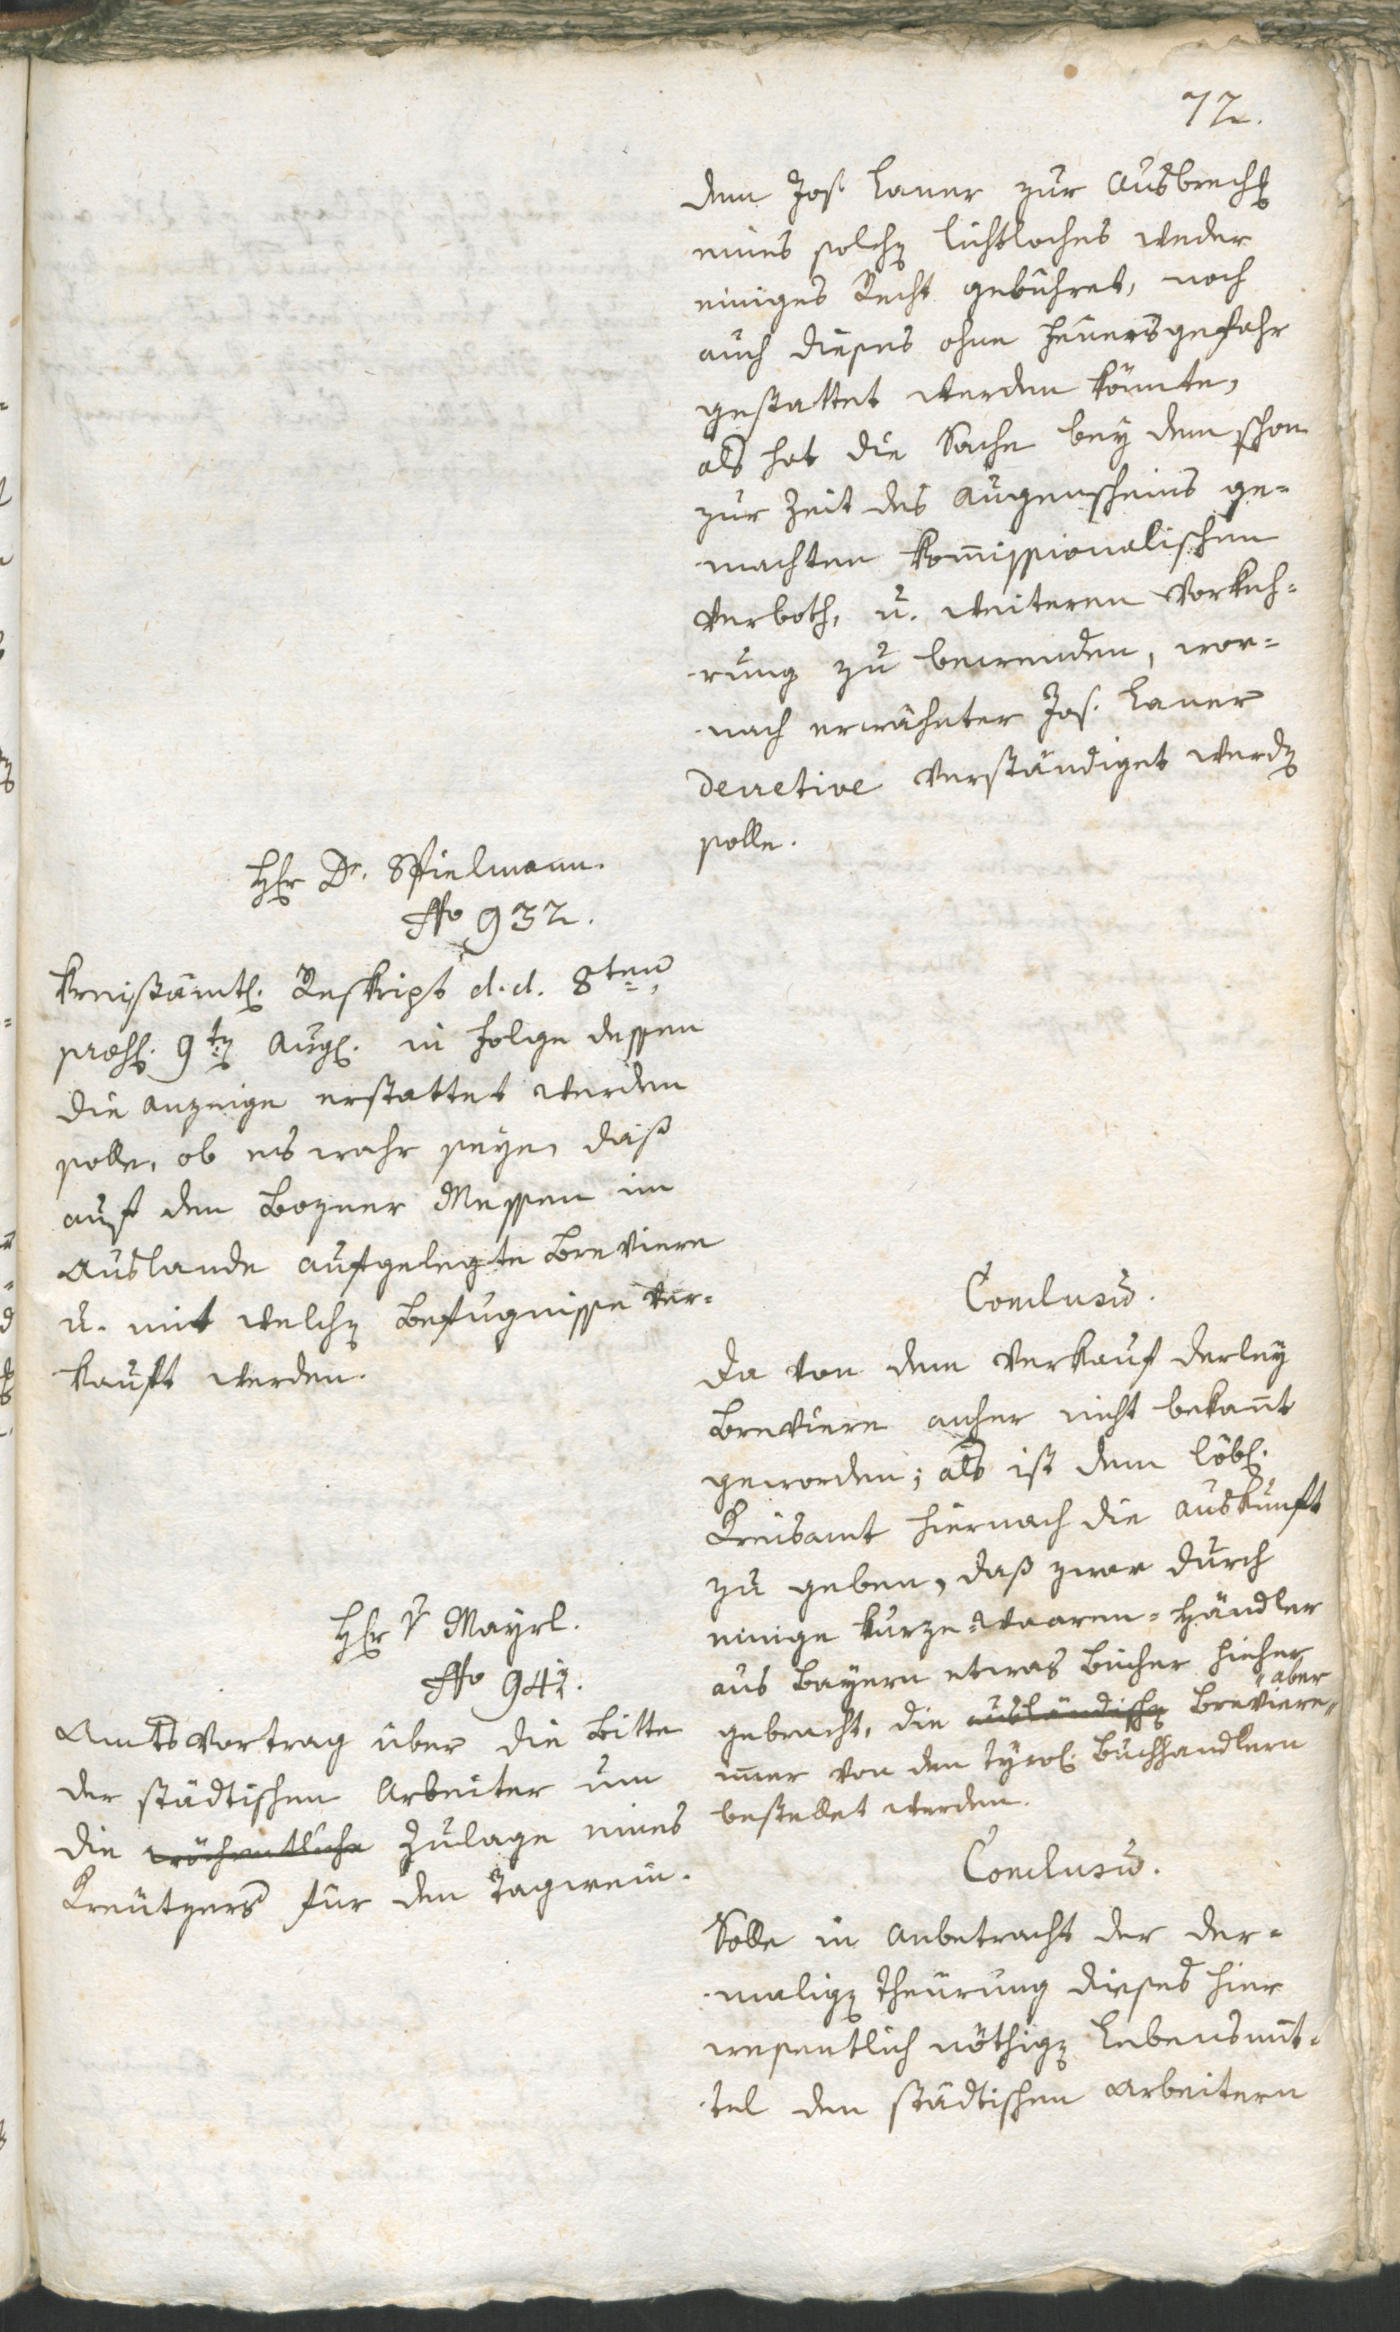 72.
dem Jos. Laner zur Ausbrech(en)
eines solch(en) Lichtloches weder
einiges Recht gebühret, noch
auch dieses ohne Feuersgefahr
gestattet werden könnte,
als hat die Sache bey dem schon
zur Zeit des Augenscheins ge=
machten kom̄issionalischen
Verboth, u. weiteren Vorkeh=
rung zu bewenden, wor=
nach erwähnter Jos. Laner
decretive verständiget werd(en)
solle.
H(er)r Dr. Spielmann.
No 932.
Kreisämtl. Reskript d. d. 8ten
præs. 9t(en) Aug. in Folge dessen
die Anzeige erstattet werden
solle, ob es wahr seye, daß
auf den Bozner Messen im
Auslande aufgelegte Breviere
u. mit welch(en) Befugnisse ver=
kauft werden.
Conclusū.
Da von dem Verkauf derley
Breviere anher nicht bekan̄t
geworden; als ist dem löbl.
Kreisamt hiernach die Auskunft
zu geben, daß zwar durch
einige kurze=Waaren=Händler
aus Bayern etwas Bücher hieher
gebracht, die ausländisch(en) Breviere aber
im̄er von den tyrol. Buchhandlern
bestellet werden.
H(er)r v Mayrl.
No 941.
Amts Vortrag über die Bitte
der städtischen Arbeiter um
die wöchentliche Zulage eines
Kreützers für den Tagwein.
Conclusū.
Solle in Anbetracht der der=
malig(en) Theurung dieses hier
wesentlich nöthig(en) Lebensmit=
tel den städtischen Arbeitern